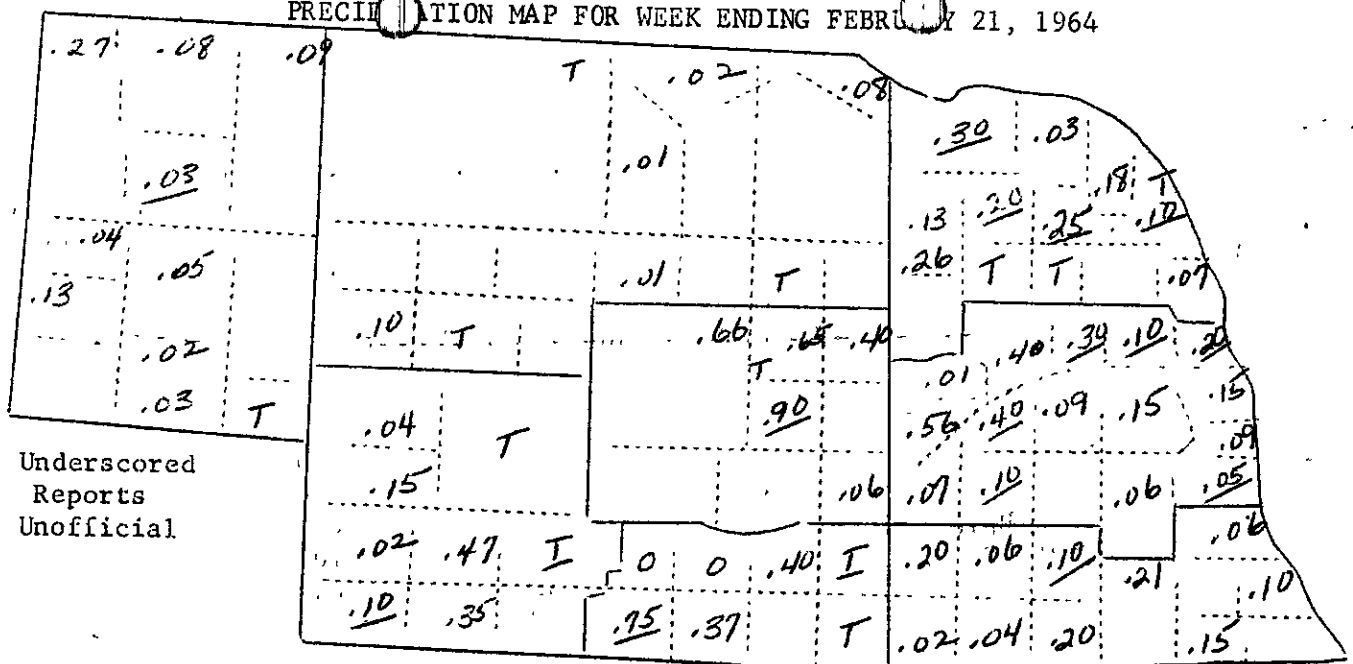 PRECIPITATION MAP FOR WEEK ENDING FEBRUARY 21, 1964
.27 .08 .09 T .02 .08
.30 .03
.03 .01 .18 T
.13 .20 .25 .10
.04 .05 .01 T .26 T T .07
.13
.10 T .66 .65 .40 .40 .30 .10 .20
.02 T .01
.03 T .04 T .90 .56 .40 .09 .15 .15
.09
Underscored
Reports
Unofficial
.15 .06 .07 .10 .06 .05
.02 .47 T 0 0 .40 T .20 .06 .10 .06
.21 .10
.10 .35 .75 .37 T .02 .04 .20 .15